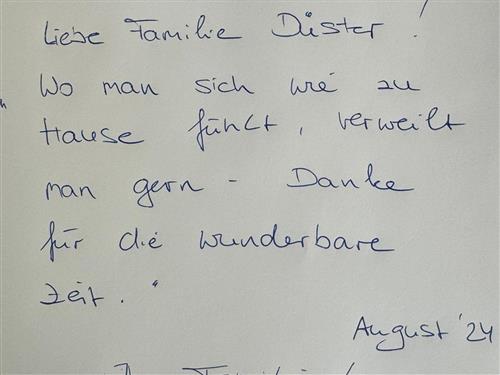 Liebe Familie Düster!
Wo man sich wie zu
Hause fühlt, verweilt
man gern - Danke
für die wunderbare
Zeit."
August '24